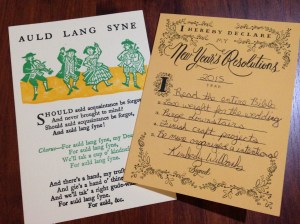 AULD LANG SYNE
SHOULD auld acquaintance be forgot,
And never brought to mind?
Should auld acquaintance be forgot,
And auld lang syne!
Chorus—For auld lang syne, my Dear,
For auld lang syne,
We'll tak a cup o' kindness
For auld lang syne.
And there's a hand, my trusty
And gie's a hand o' thine
And we'll tak' a right gude-willie
For auld lang syne.
For auld, &c.
I HEREBY DECLARE
MY
New Year's Resolutions
2015
YEAR
Read the entire Bible
Lose weight for the wedding
Keep
Finish craft projects
Be more organized & intentional
Signed